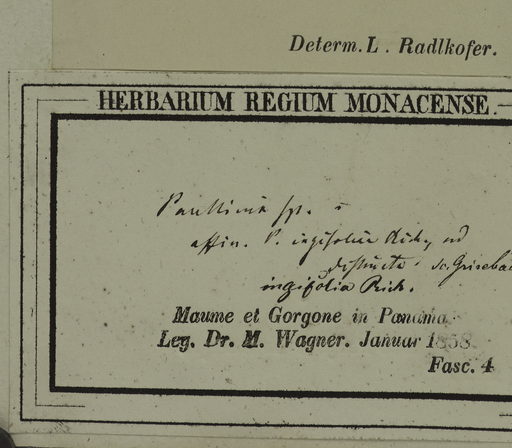 Determ. L. Radlkofer.
HERBARIUM REGIUM MONACENSE.
Paullinia sp.
affin. P. ingifoliae Rich., sed
distincta
ingifolia Rich.
Maume et Gorgone in Panama
Leg. Dr. M. Wagner. Januar 1858
Fasc. 4